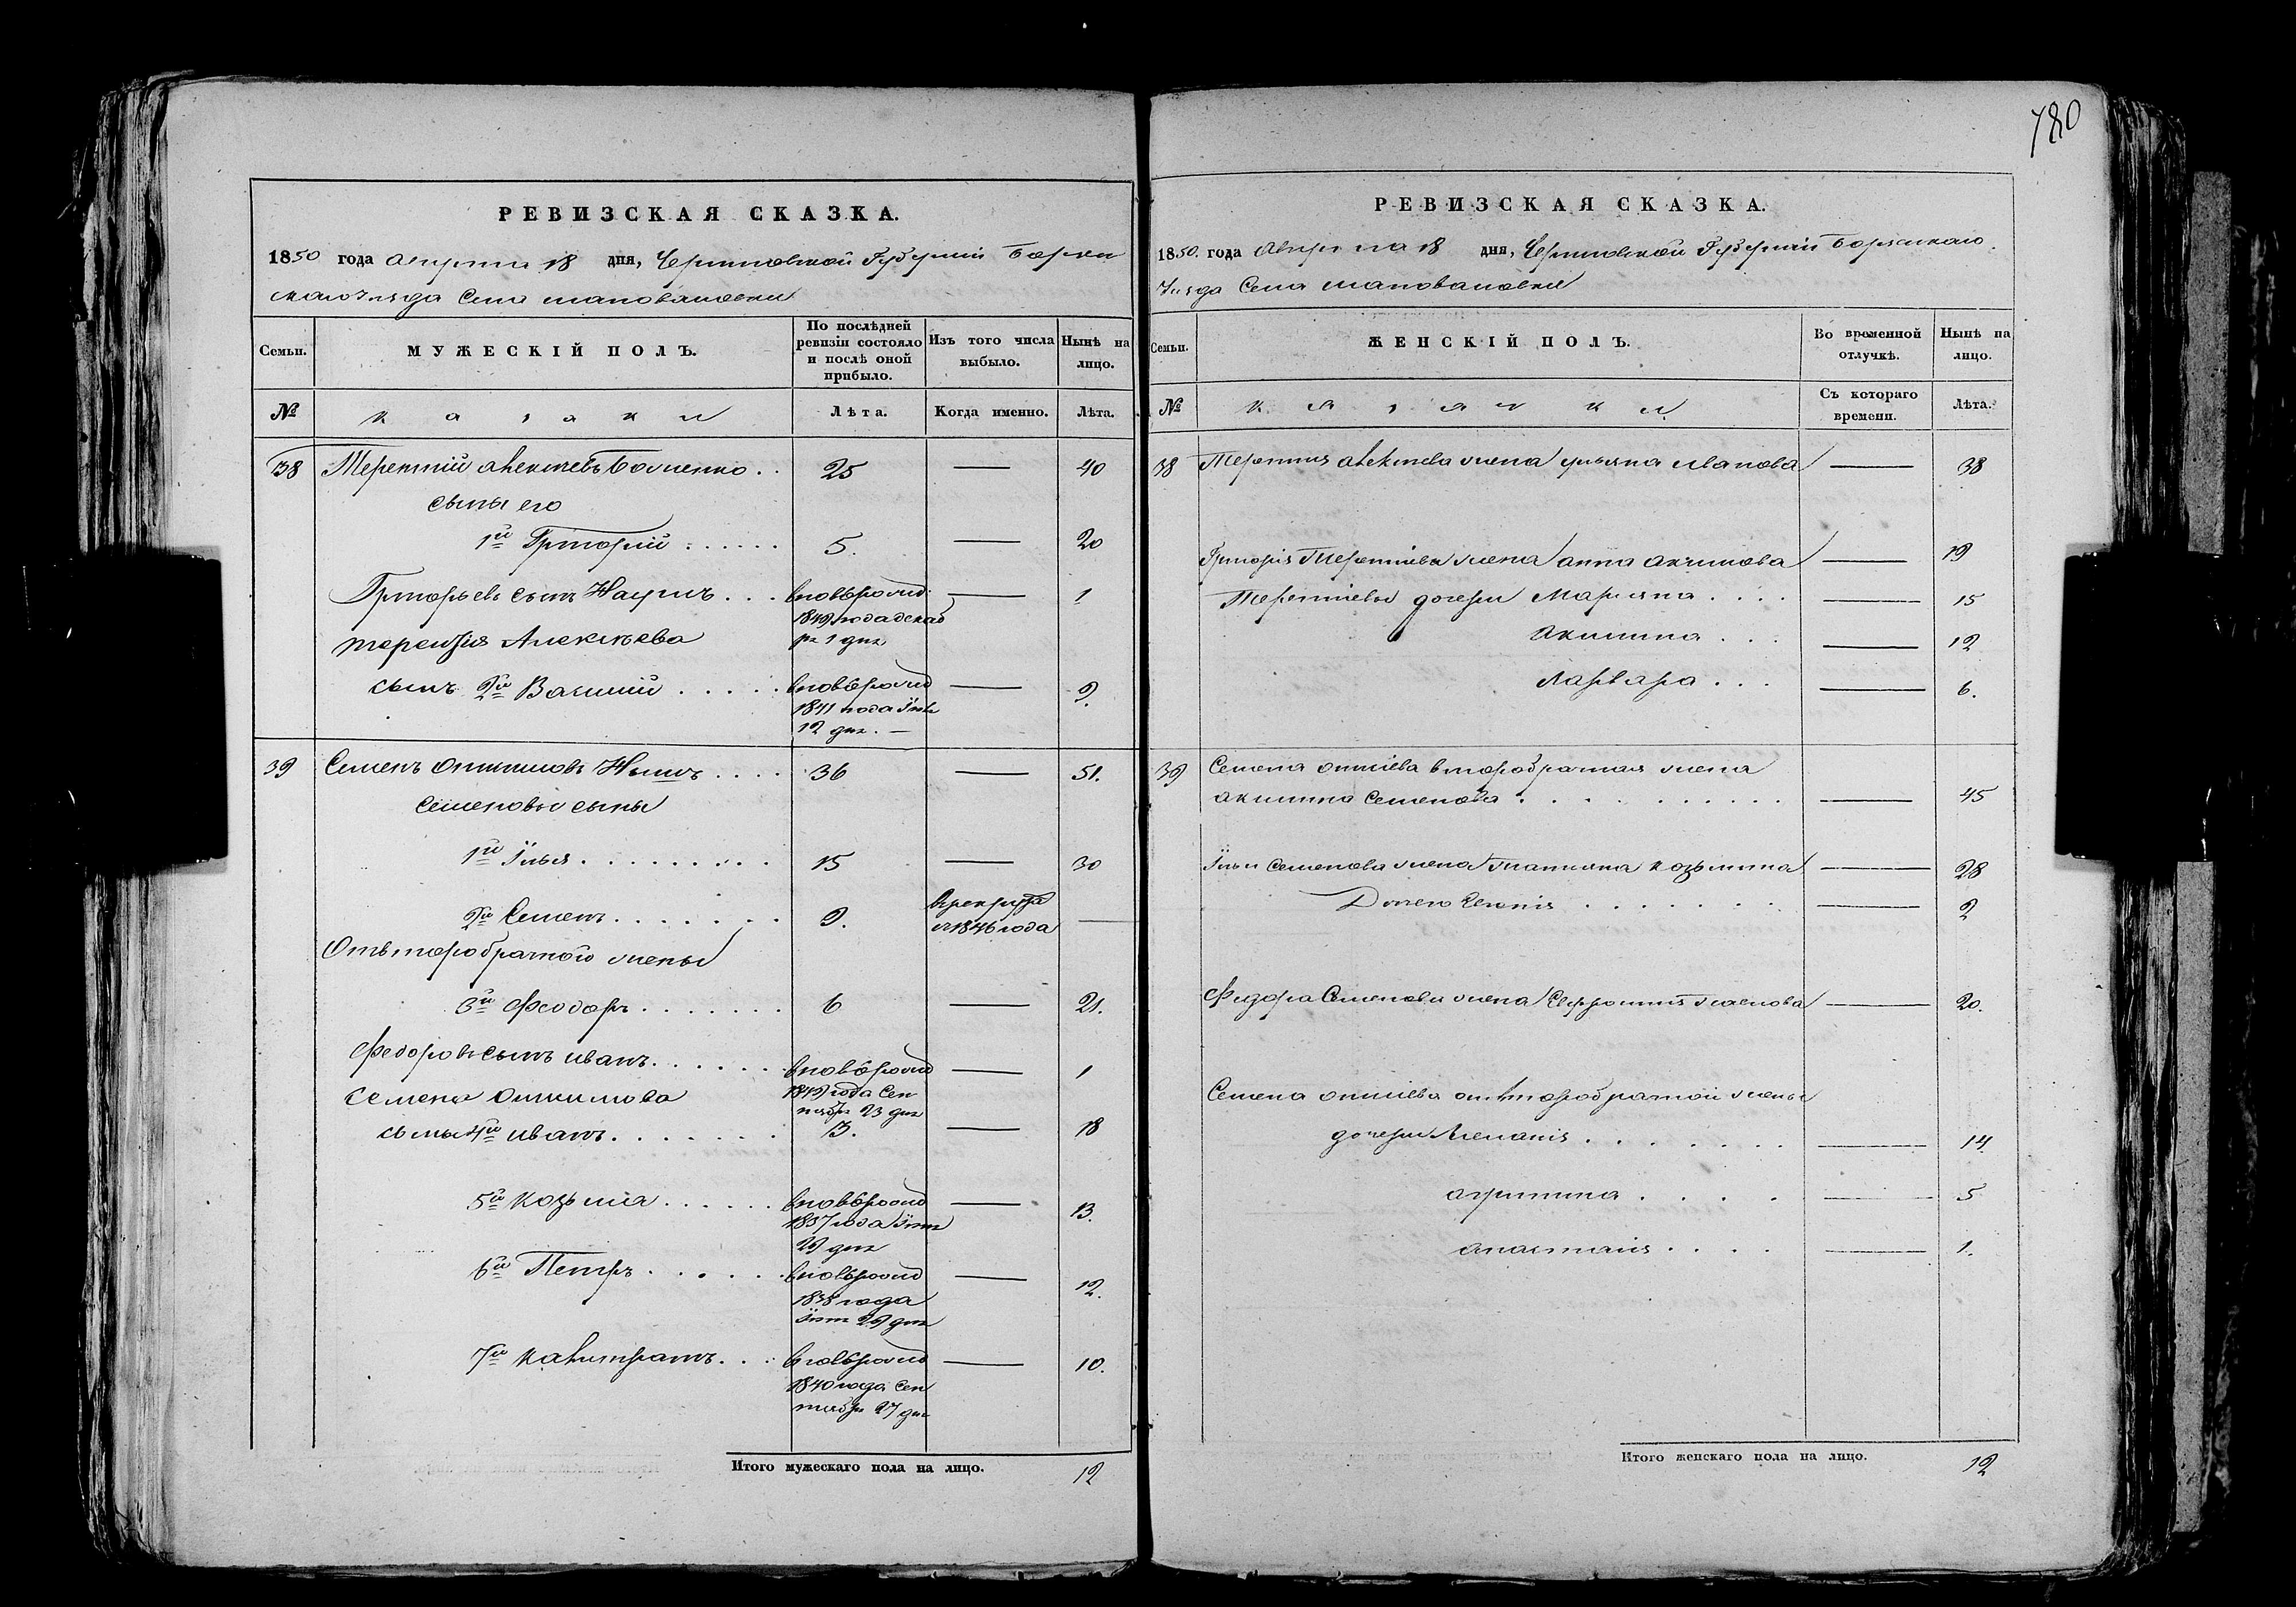 780
РЕВИЗСКАЯ СКАЗКА.
1850 года Августа 18 дня, Черниговской Губерніи Борзен
скаго уезда Села
Семьи. МУЖЕСКІЙ ПОЛЪ. По послѣдней ревизіи состояло и послѣ оной прибыло. Изъ того числа выбыло. Нынѣ на лицо.
№ казаки Лѣта. Когда именно. Лѣта.
38 Терентій Алексѣевъ 25 — 40
сыны его
1й Григорій 5. — 20
Григорьевъ сынъ Наумъ вновьрожд. — 1
1849 года декаб
ря 1 дня
терентія Алексѣева
сынъ 2й Василій вновьрожд — 9.
1841 года
12 дня. —
39 Семенъ 36 — 51.
Семеновы сыны
1й Илья 15 — 30
2й Семенъ 9. врекруты —
1846 года
Отвторобрачной жены
3й Феодоръ 6 — 21.
Федоровъ сынъ иванъ вновьрожд — 1
1849 года Сен
тября 23 дня
Семена
сынъ 4й иванъ 3. — 18
5й Козьма вновьрожд — 13.
1837 года
29 дня
6й Петръ вновьрожд — 12.
1838 года
29 дня
7й Калистратъ вновьрожд — 10.
1840 года Сен
тября 27 дня
Итого мужескаго пола на лицо. 12
РЕВИЗСКАЯ СКАЗКА.
1850. года Августа 18 дня, Черниговской Губерніи Борзенскаго
Уезда Села
Семьи. ЖЕНСКІЙ ПОЛЪ. Во временной отлучкѣ. Нынѣ на лицо.
№ казачки Съ котораго времени. Лѣта.
38 Терентия Алексеева жена ульяна иванова — 38
Григорія Терентиева жена анна акимова — 19
Терентиевы дочери Марияна — 15
Акилина — 12
Варвара — 6.
39 Семена второбрачная жена
акилина Семенова — 45
Ильи Семенова жена татияна козьмина — 28
Дочь — 2
Федора Семенова жена — 20.
Семена отвторобрачной жены
дочери — 14
агрипина — 5
анастаия — 1.
Итого женскаго пола на лицо. 12